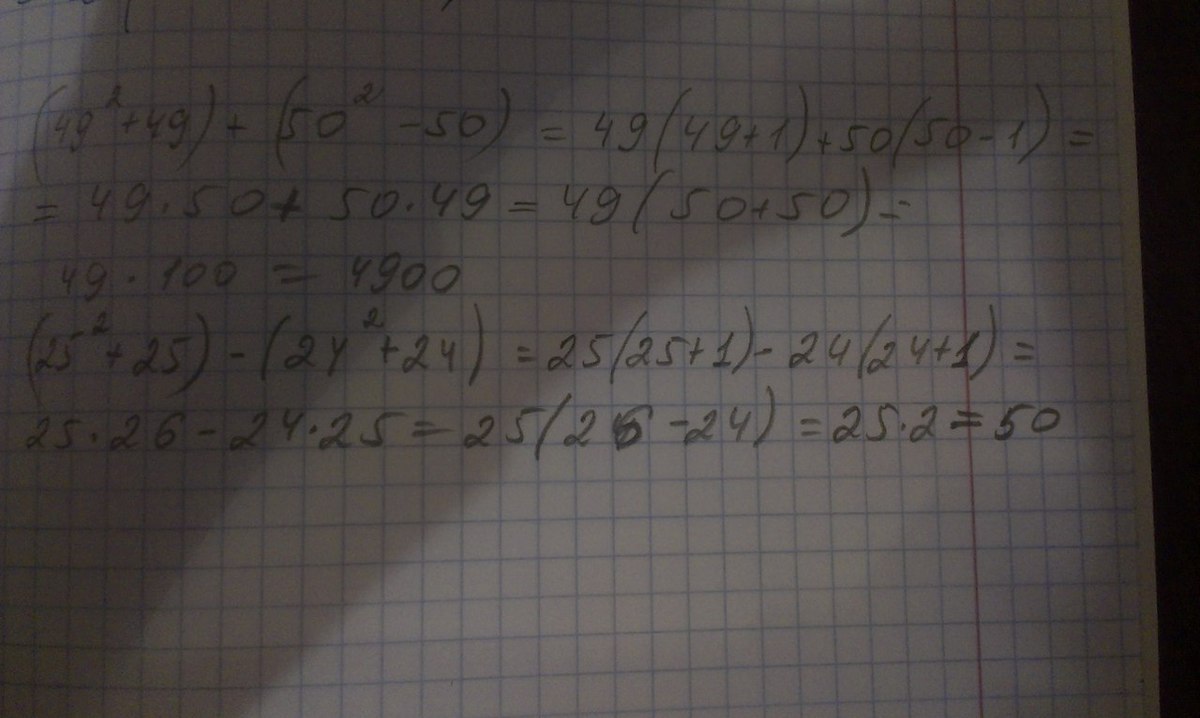 (49²+49)+(50²-50)=49(49+1)+50(50-1)=
=49·50+50·49=49(50+50)=
49·100=4900
(25²+25)-(24²+24)=25(25+1)-24(24+1)=
25·26-24·25=25(26-24)=25·2=50